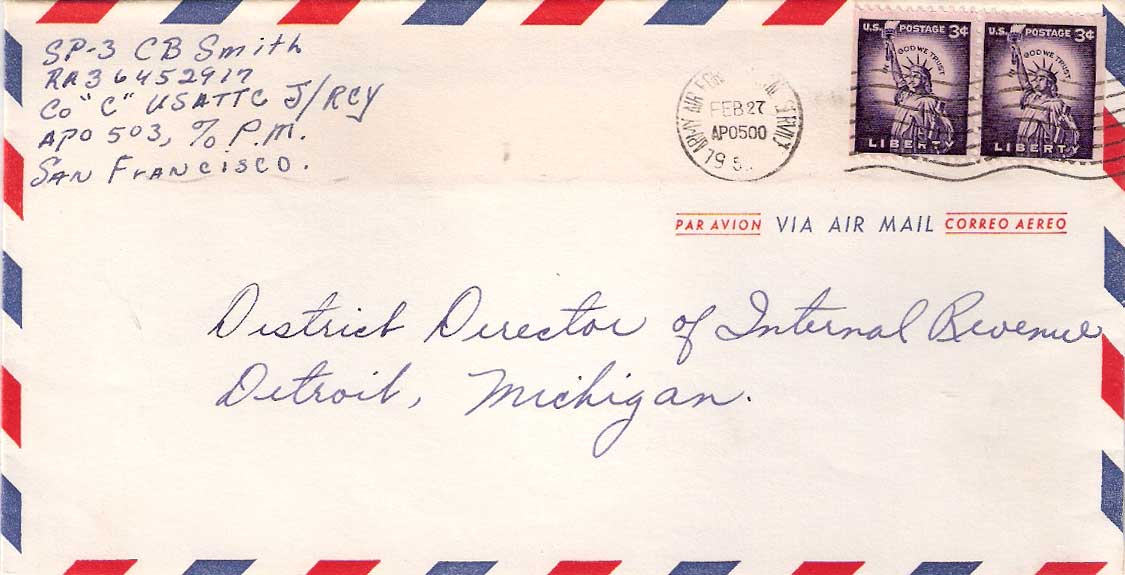 SP-3 CB Smith
RA36452917
Co "C" USATTC J/RCY
APO 503, % P.M.
San Francisco.
ARMY AIR SERVICE
FEB 27
APO500
195
U.S. POSTAGE 3¢
IN GOD WE TRUST
LIBERTY
U.S. POSTAGE 3¢
IN GOD WE TRUST
LIBERTY
PAR AVION VIA AIR MAIL CORREO AEREO
District Director of Internal Revenue
Detroit, Michigan.